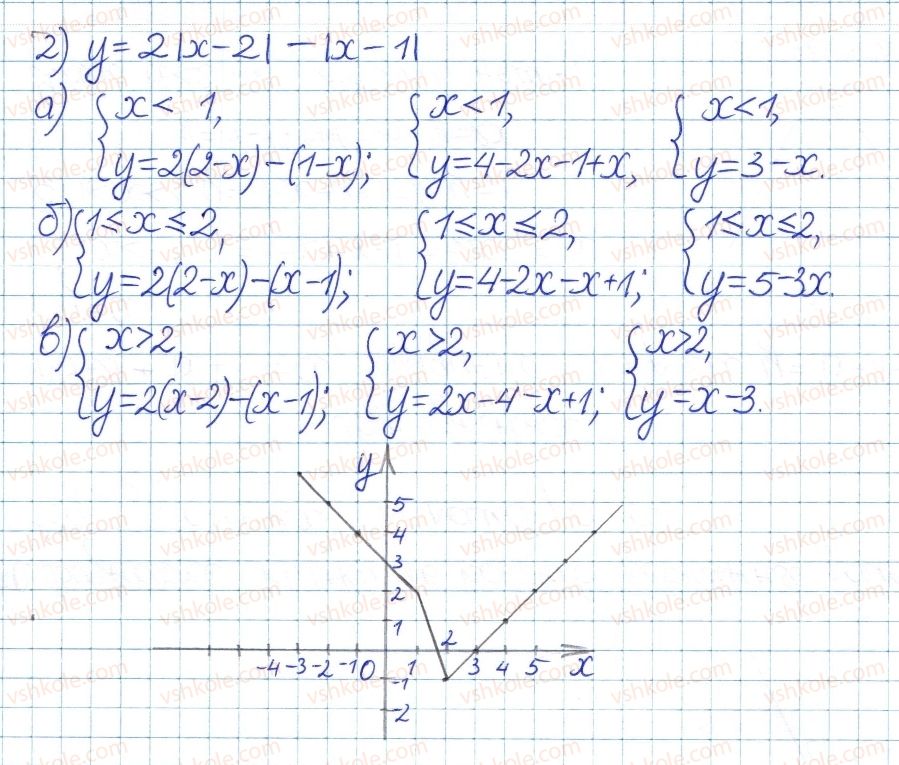 2) y = 2|x-2| - |x-1|
а) { x < 1, y = 2(2-x) - (1-x); { x < 1, y = 4-2x-1+x, { x < 1, y = 3-x.
б) { 1 ≤ x ≤ 2, y = 2(2-x) - (x-1); { 1 ≤ x ≤ 2, y = 4-2x-x+1; { 1 ≤ x ≤ 2, y = 5-3x.
в) { x > 2, y = 2(x-2) - (x-1); { x > 2, y = 2x-4-x+1; { x > 2, y = x-3.
y
5
4
3
2
1
2
-4 -3 -2 -1 0 1 3 4 5 x
-1
-2
vshkole.com